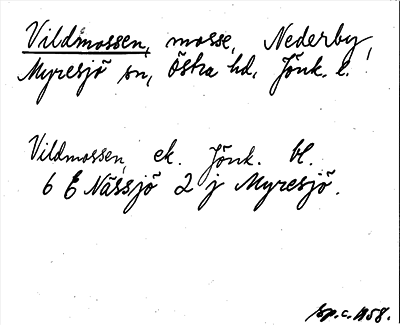 Vildmossen, mosse, Nederby,
Myresjö sn, Östra hd, Jönk. l.
Vildmossen, ek. Jönk. bl.
6 E Nässjö 2 j Myresjö.
sp.c. 1958.